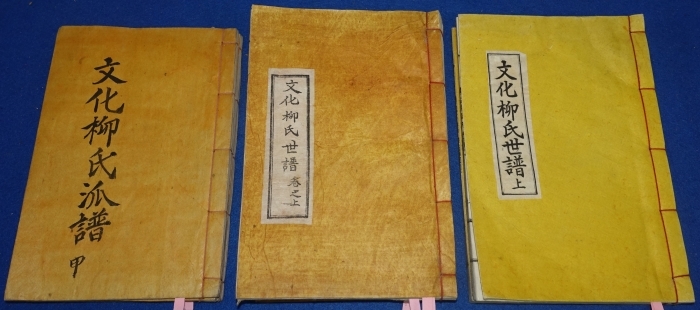 文化柳氏派譜 甲
文化柳氏世譜 卷之上
文化柳氏世譜 上